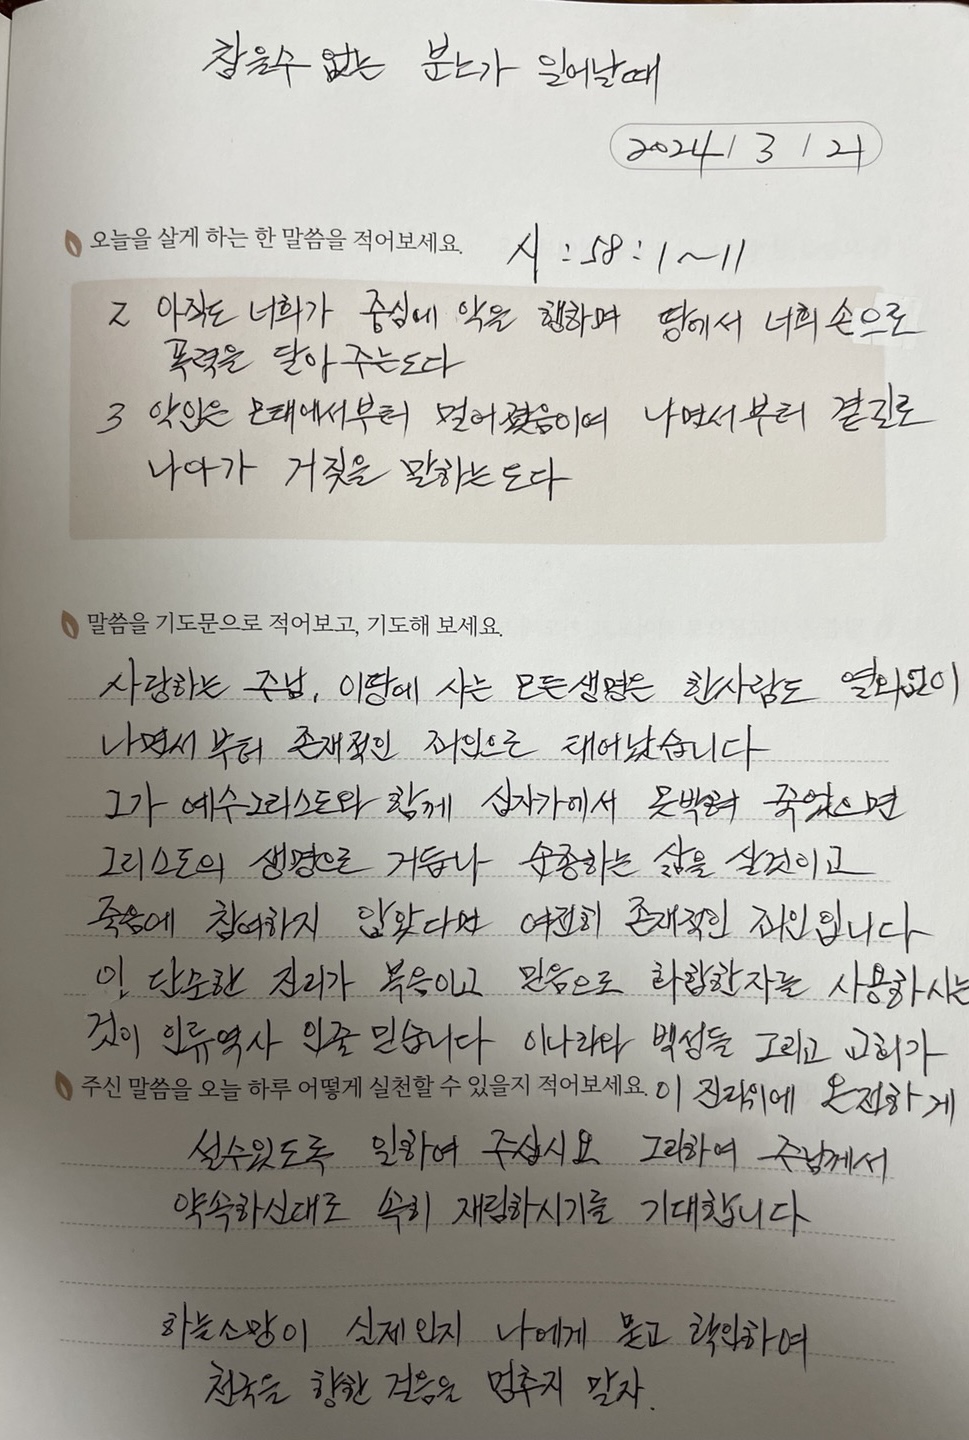 참을수 없는 분노가 일어날때
2024 / 3 / 21
오늘을 살게 하는 한 말씀을 적어보세요.
시 : 58 : 1 ~ 11
2 아직도 너희가 중심에 악을 행하며 땅에서 너희 손으로
폭력을 달아 주는도다
3 악인은 모태에서부터 멀어졌음이여 나면서부터 곁길로
나아가 거짓을 말하는도다
말씀을 기도문으로 적어보고, 기도해 보세요.
사랑하는 주님, 이땅에 사는 모든생명은 한사람도 열외없이
나면서부터 존재적인 죄인으로 태어났습니다
그가 예수그리스도와 함께 십자가에서 못박혀 죽었으면
그리스도의 생명으로 거듭나 순종하는 삶을 살것이고
죽음에 참여하지 않았다면 여전히 존재적인 죄인입니다
이 단순한 진리가 복음이고 믿음으로 화합한자를 사용하시는
것이 인류역사 인줄 믿습니다 이나라와 백성들 그리고 교회가
주신 말씀을 오늘 하루 어떻게 실천할 수 있을지 적어보세요.
이 진리위에 온전하게
설수있도록 일하여 주십시요 그리하여 주님께서
약속하신대로 속히 재림하시기를 기대합니다
하늘소망이 실제인지 나에게 묻고 확인하여
천국을 향한 걸음을 멈추지 말자.